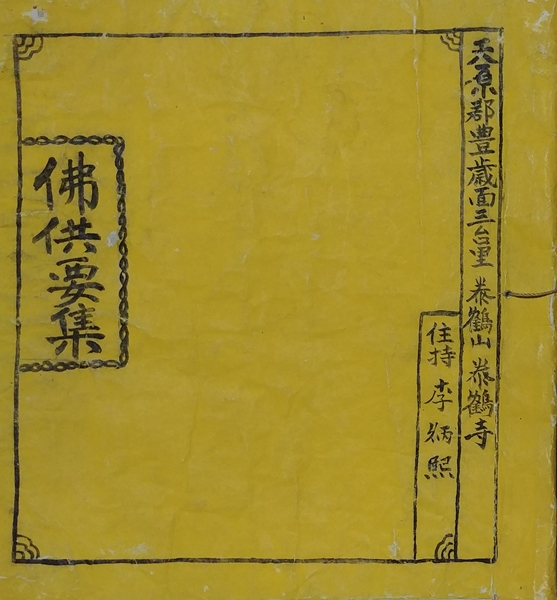 天原郡豊歳面三台里 泰鶴山 泰鶴寺
住持 李炳熙
佛供要集